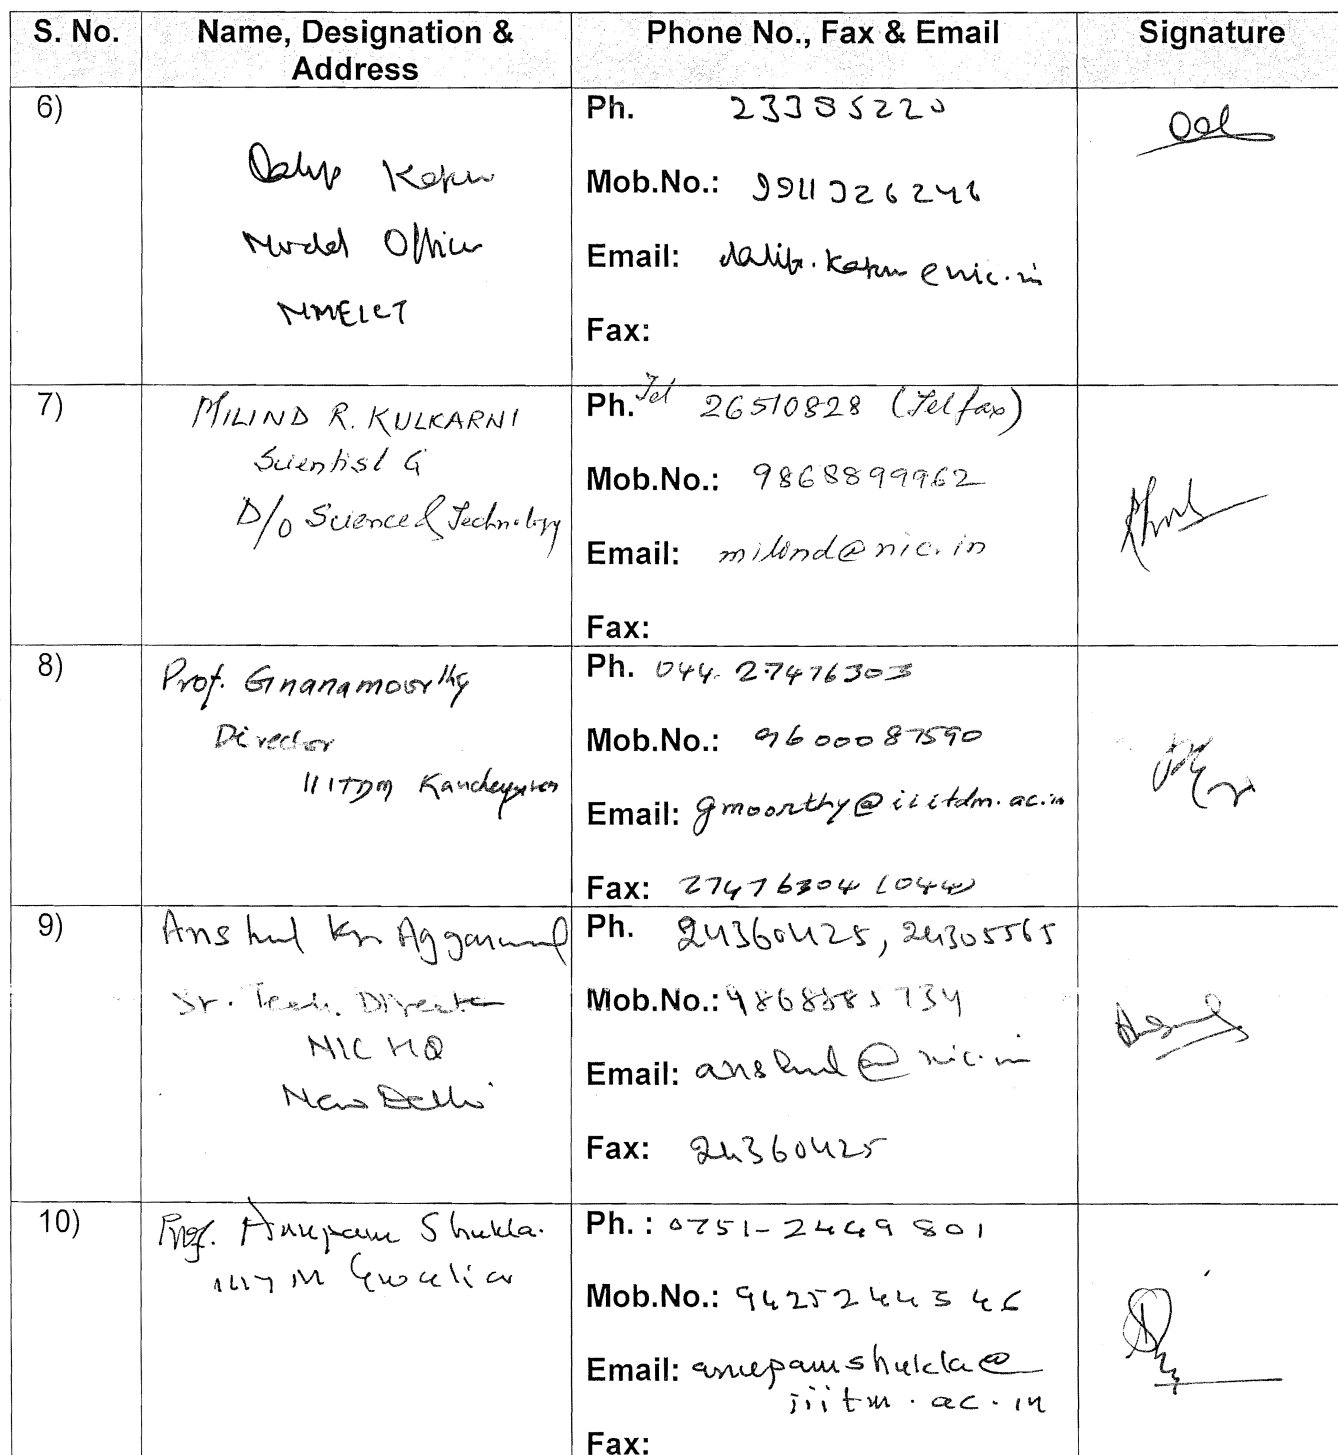 S. No. Name, Designation & Address Phone No., Fax & Email Signature
6)
Dalip Kapur
Nodal Officer
NMEICT
Ph. 23385220
Mob.No.: 9911926246
Email: dalip.kapur@nic.in
Fax:
7)
MILIND R. KULKARNI
Scientist G
D/o Science & Technology
Ph. Tel 26510828 (Telfax)
Mob.No.: 9868899962
Email: milind@nic.in
Fax:
8)
Prof. Gnanamoorthy
Director
IIITDM Kancheepuram
Ph. 044-27476303
Mob.No.: 9600087590
Email: gmoorthy@iiitdm.ac.in
Fax: 27476304 (044)
9)
Anshul Kr Aggarwal
Sr. Tech. Director
NIC HQ
New Delhi
Ph. 24360425, 24305565
Mob.No.:
Email: anshul@nic.in
Fax: 24360425
10)
Prof. Anupam Shukla.
IIITM Gwalior
Ph. : 0751-2449801
Mob.No.: 9425244346
Email: anupamshukla@
iiitm.ac.in
Fax: